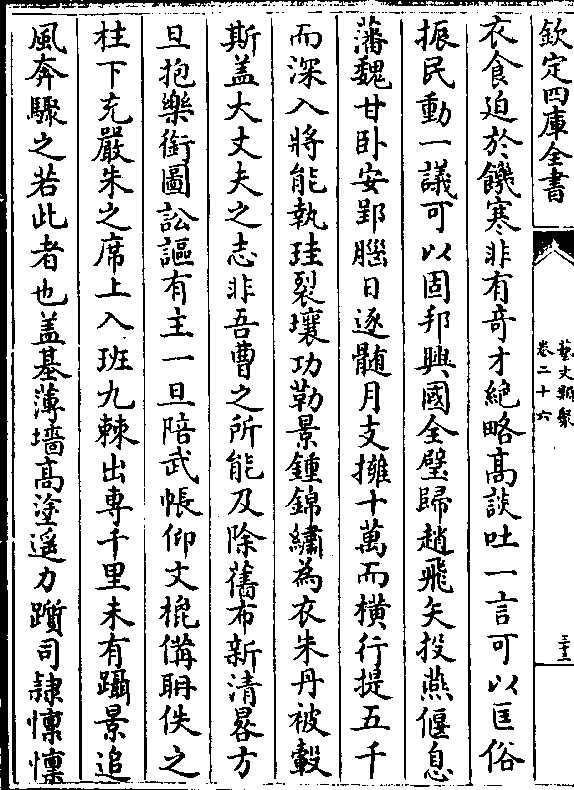 欽定四庫全書
藝文類聚
卷二十六
三十三
衣食迫於饑寒非有奇才絶略高談吐一言可以匡俗
振民動一議可以固邦興國全璧歸趙飛矢投燕偃息
藩魏甘卧安郢腦日逐髄月支擁十萬而横行提五千
而深入將能執珪裂壤功勒景鍾錦繡為衣朱丹被轂
斯盖大丈夫之志非吾曹之所能及除舊布新清晷方
旦抱樂銜圖訟謳有主一旦陪武帳仰文棍備聃佚之
柱下充嚴朱之席上入班九棘出專千里未有躡景追
風奔驟之若此者也盖基薄墻高塗遥力躓司隷懍懍